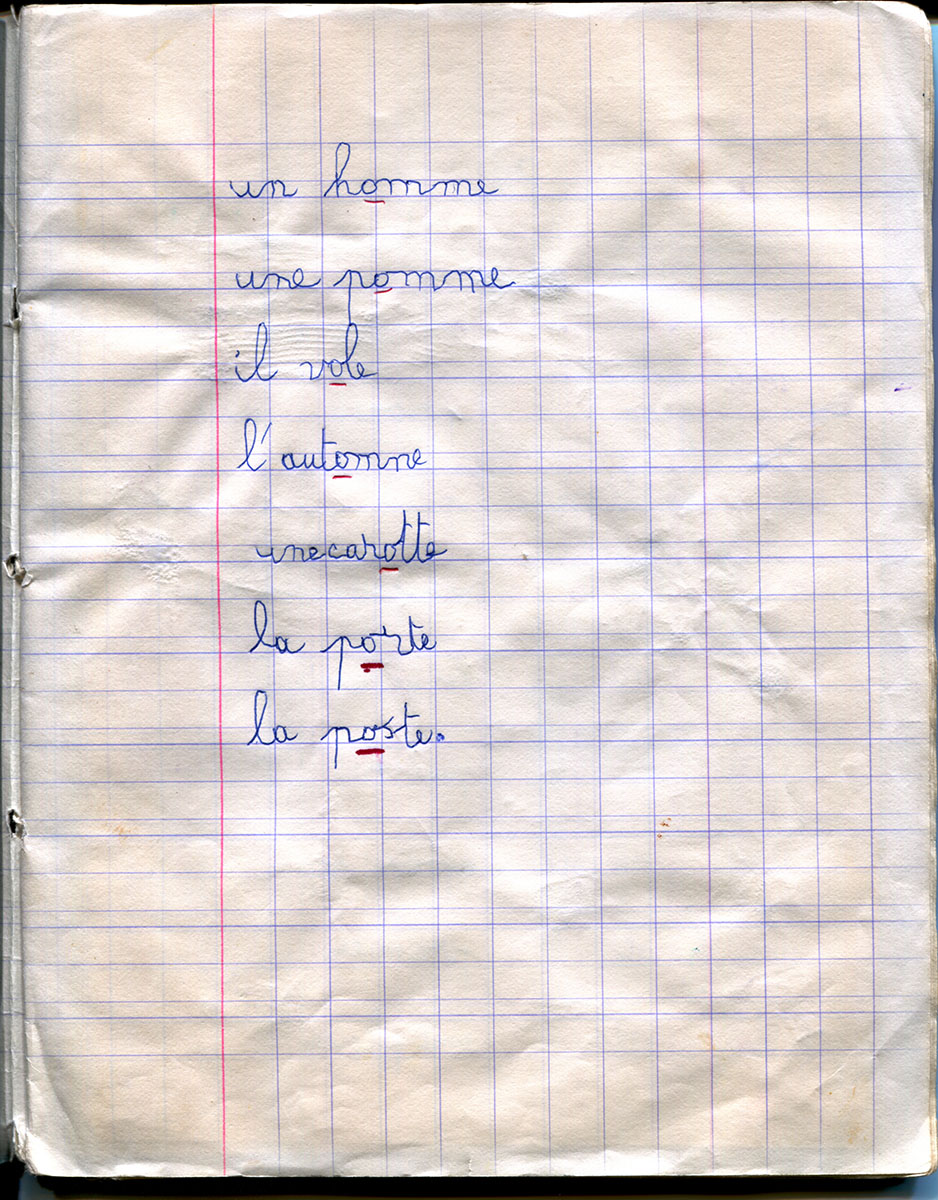 un homme
une pomme
il vole
l'automne
unecarotte
la porte
la poste.